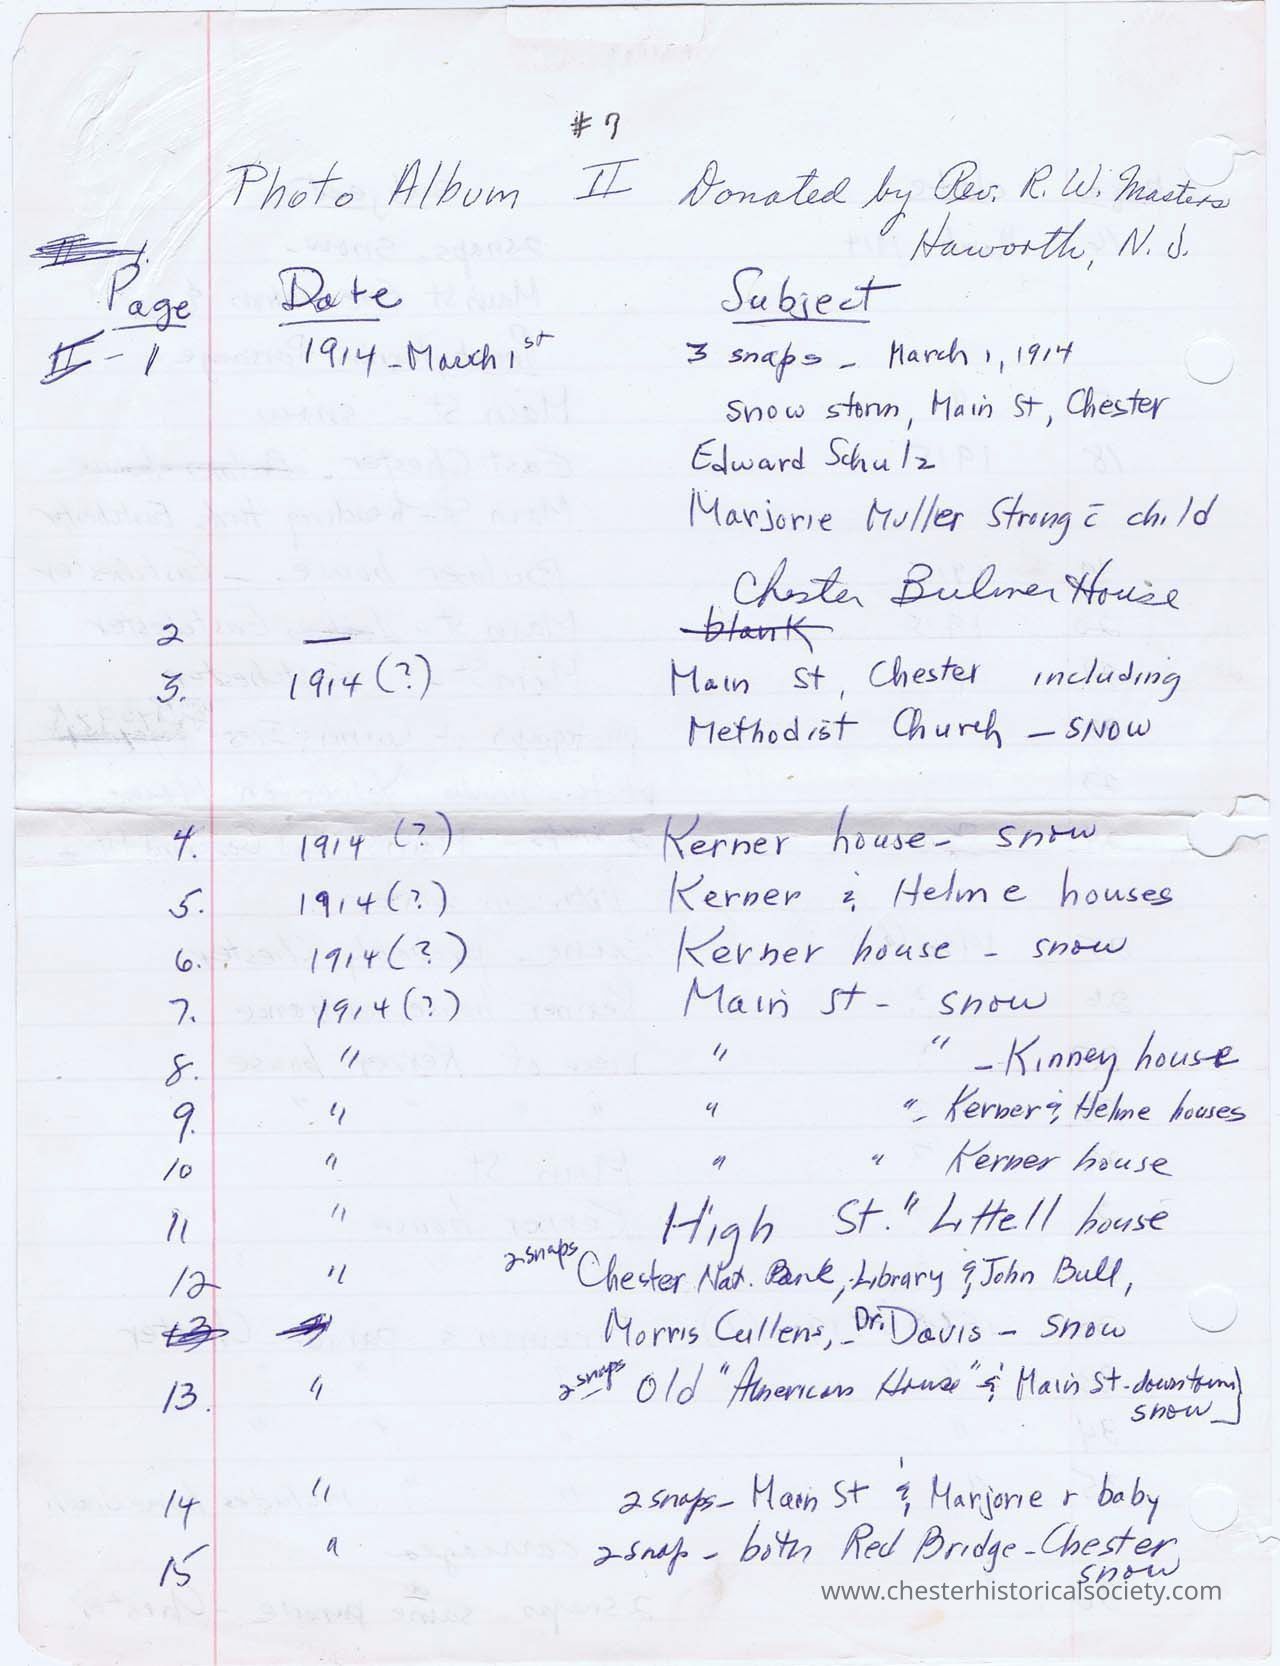 # 7
Photo Album II Donated by Rev. R. W. Masters
Haworth, N. J.
Page Date Subject
II - 1 1914 - March 1st 3 snaps - March 1, 1914
snow storm, Main St, Chester
Edward Schulz
Marjorie Muller Strong c̄ child
Chester Bulmer House
2 — blank
3. 1914 (?) Main St, Chester including
Methodist Church - SNOW
4. 1914 (?) Kerner house - snow
5. 1914 (?) Kerner & Helme houses
6. 1914 (?) Kerner house - snow
7. 1914 (?) Main St - snow
8. " " " - Kinney house
9. " " " - Kerner & Helme houses
10 " " " Kerner house
11 " High St. " Littell house
12 " 2 snaps Chester Nat. Bank, Library & John Bull,
13 Morris Cullens, - Dr. Davis - snow
13. " 2 snaps Old "American House" & Main St - downtown
snow
14 " 2 snaps - Main St & Marjorie & baby
15 " 2 snap - both Red Bridge - Chester
snow
www.chesterhistoricalsociety.com